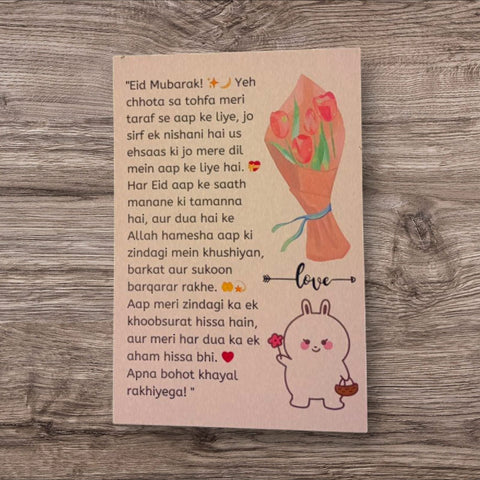 "Eid Mubarak! ✨🌙 Yeh
chhota sa tohfa meri
taraf se aap ke liye, jo
sirf ek nishani hai us
ehsaas ki jo mere dil
mein aap ke liye hai. 💝
Har Eid aap ke saath
manane ki tamanna
hai, aur dua hai ke
Allah hamesha aap ki
zindagi mein khushiyan,
barkat aur sukoon
barqarar rakhe. 🤲💫
Aap meri zindagi ka ek
khoobsurat hissa hain,
aur meri har dua ka ek
aham hissa bhi. ❤️
Apna bohot khayal
rakhiyega! "
love